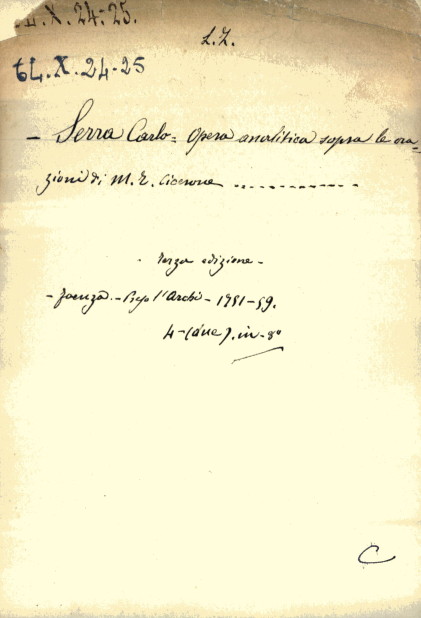 LL.X. 24-25.
L.Z.
tL.X.24-25
- Serra Carlo = Opera analitica sopra le ora=
zioni di M. T. Cicerone
- terza edizione -
- Faenza - l'Archi - 17 -59.
4 - (due). in - 8º
C